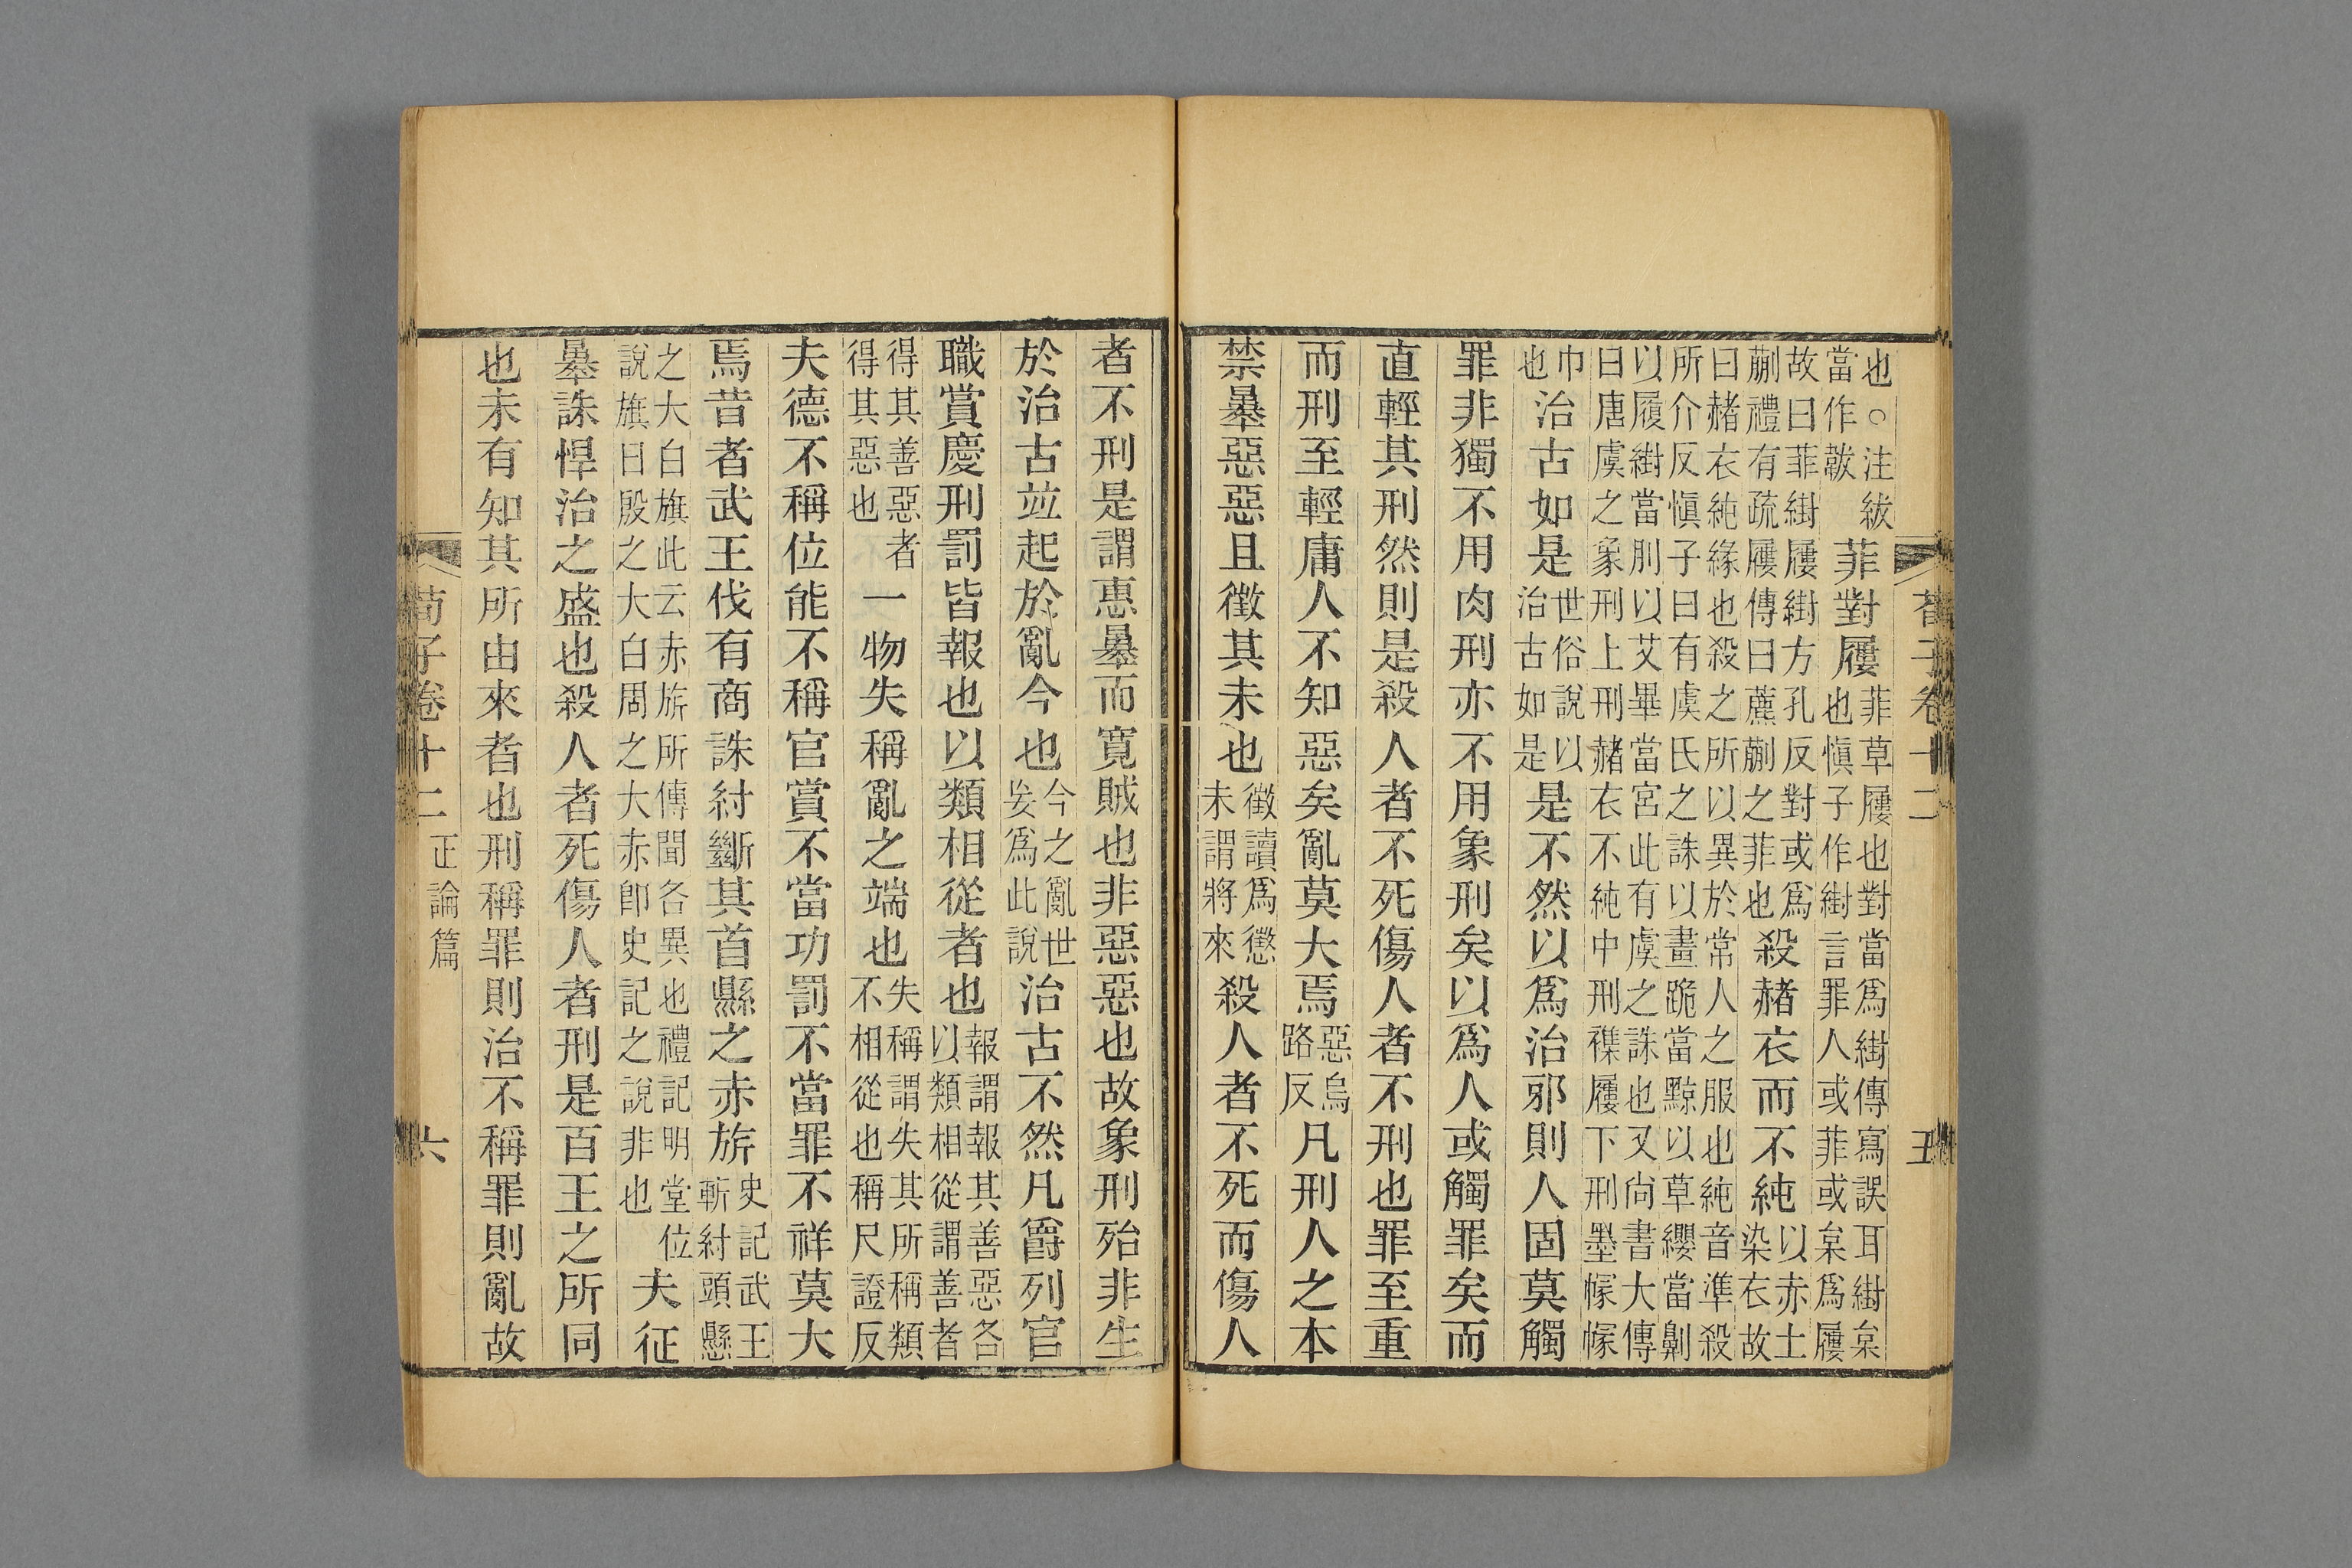 荀子卷十二　五
也○注紱
當作韍
菲對屨
菲草屨也對當爲䋽傳寫誤耳䋽枲
也愼子作䋽言罪人或菲或枲爲屨
故曰菲䋽屨䋽方孔反對或爲
蒯禮有疏屨傳曰藨蒯之菲也
殺赭衣而不純
以赤土
染衣故
曰赭衣純緣也殺之所以異於常人之服也純音準殺
所介反愼子曰有虞氏之誅以畫跪當黥以草纓當劓
以履䋽當刖以艾畢當宮此有虞之誅也又尙書大傳
曰唐虞之象刑上刑赭衣不純中刑襍屨下刑墨幪幪
巾
也
治古如是
世俗說以
治古如是
是不然以爲治邪則人固莫觸
罪非獨不用肉刑亦不用象刑矣以爲人或觸罪矣而
直輕其刑然則是殺人者不死傷人者不刑也罪至重
而刑至輕庸人不知惡矣亂莫大焉
惡烏
路反
凡刑人之本
禁暴惡惡且徵其未也
徵讀爲懲
未謂將來
殺人者不死而傷人
者不刑是謂惠暴而寬賊也非惡惡也故象刑殆非生
於治古竝起於亂今也
今之亂世
妄爲此說
治古不然凡爵列官
職賞慶刑罰皆報也以類相從者也
報謂報其善惡各
以類相從謂善者
得其善惡者
得其惡也
一物失稱亂之端也
失稱謂失其所稱類
不相從也稱尺證反
夫德不稱位能不稱官賞不當功罰不當罪不祥莫大
焉昔者武王伐有商誅紂斷其首縣之赤旂
史記武王
斬紂頭懸
之大白旗此云赤旂所傳聞各異也禮記明堂位
說旗曰殷之大白周之大赤卽史記之說非也
夫征
暴誅悍治之盛也殺人者死傷人者刑是百王之所同
也未有知其所由來者也刑稱罪則治不稱罪則亂故
荀子卷十二　正論篇　六